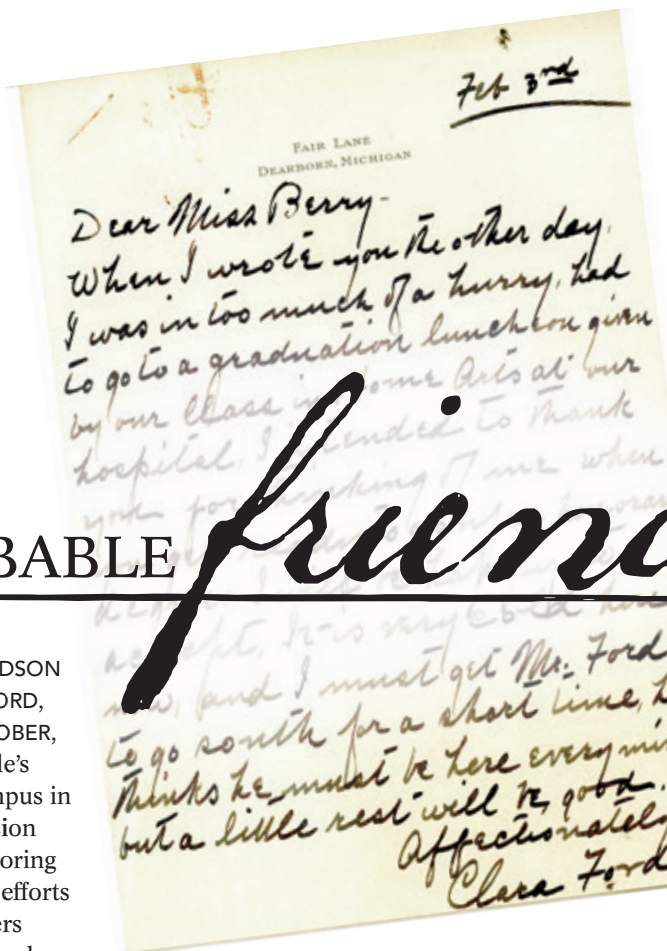 Feb 3rd
FAIR LANE
DEARBORN, MICHIGAN
Dear Miss Berry-
When I wrote you the other day,
I was in too much of a hurry, had
to go to a graduation luncheon given
by our Class in Home Arts at our
hospital, I intended to thank
you for thinking of me when
BABLE friend
accept, It is very cold here
now, and I must get Mr. Ford
to go south for a short time, h
thinks he must be here every min
but a little rest will be good.
Affectionatel
Clara Ford
DSON
ORD,
OBER,
le's
npus in
sion
oring
efforts
ers